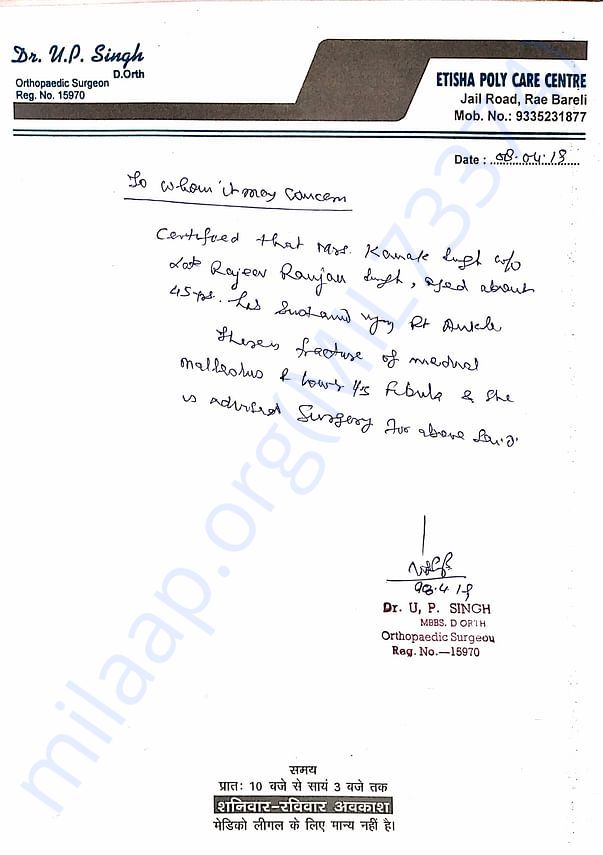 Dr. U.P. Singh
D.Orth
Orthopaedic Surgeon
Reg. No. 15970
ETISHA POLY CARE CENTRE
Jail Road, Rae Bareli
Mob. No.: 9335231877
Date : 08.04.18
To whom it may concern
Certified that Mrs. Kamale Singh w/o
Late Rajeev Ranjan Singh, aged about
45 yrs. has Sustained injury Rt Ankle
fracture of medial
malleolus & lower 1/3 fibula & she
is advised Surgery for above
Dr. U, P. SINGH
MBBS. D ORTH
Orthopaedic Surgeou
Reg. No.—15970
समय
प्रातः 10 बजे से सायं 3 बजे तक
शनिवार-रविवार अवकाश
मेडिको लीगल के लिए मान्य नहीं है।
milaap.org